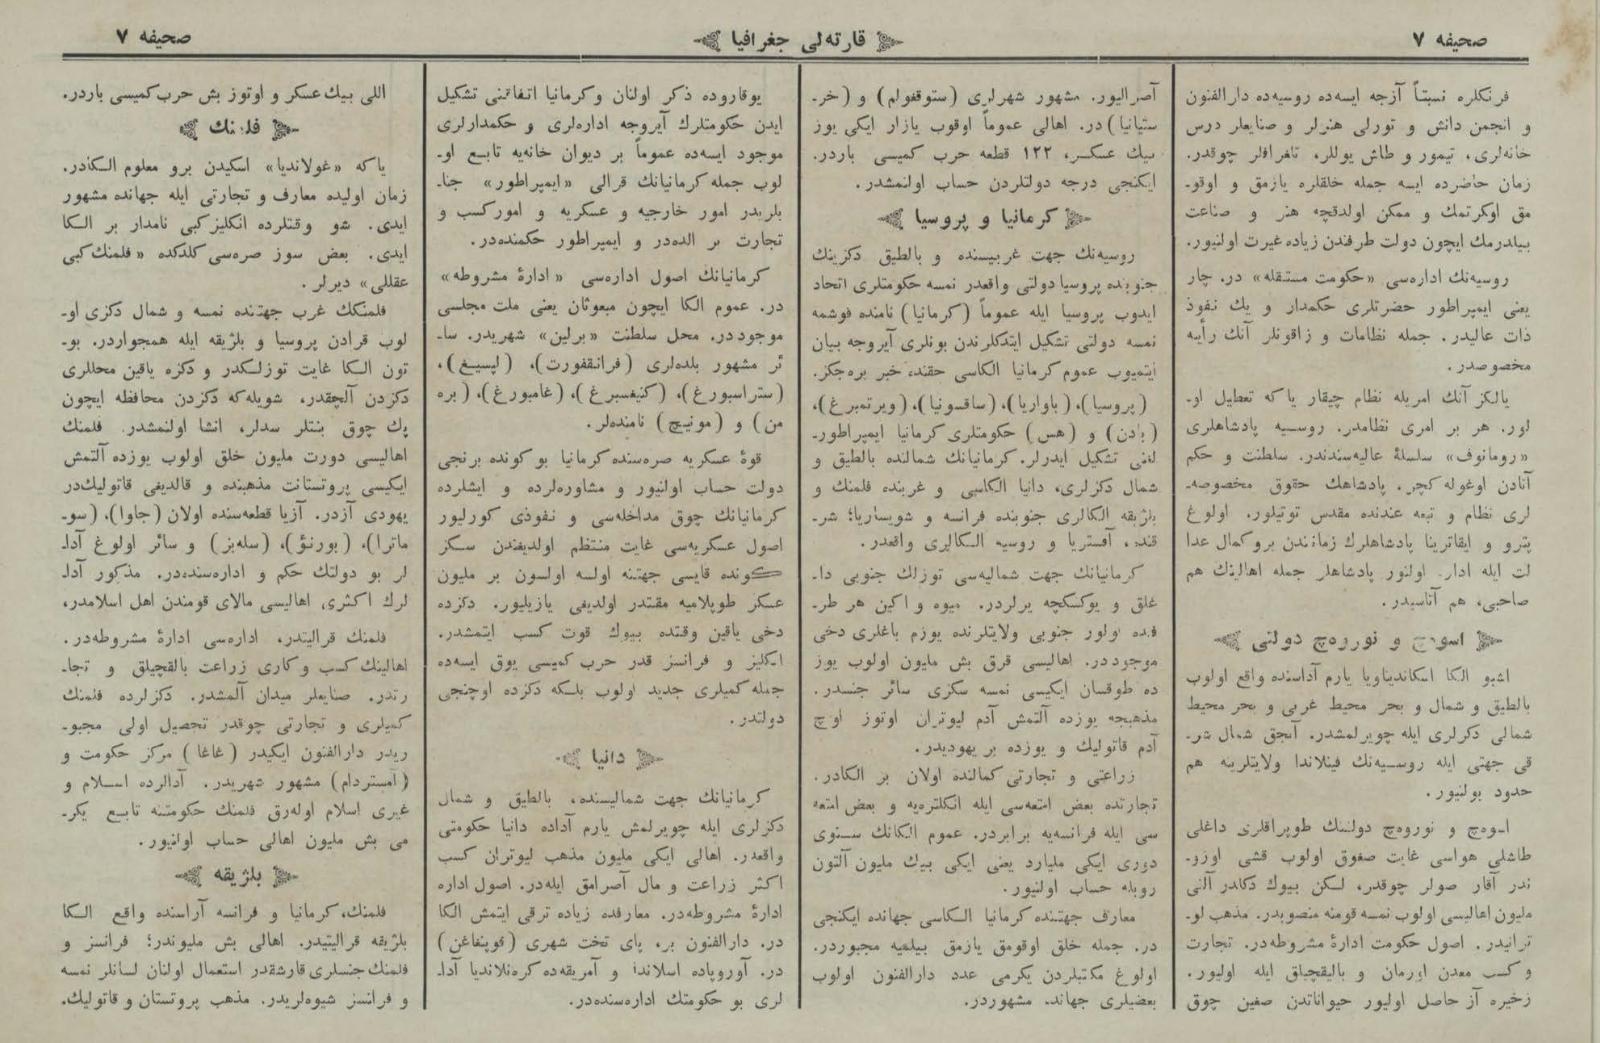 صحیفه ۷
قارته‌لی جغرافیا
صحیفه ۷
فرنكلره نسبتاً آزجه ایسه‌ده روسیه‌ده دارالفنون
و انجمن دانش و تورلی هنرلر و صنایعلر درس
خانه‌لری، تیمور و طاش یوللر، تلغرافلر چوقدر.
زمان حاضرده ایسه جمله خلقلره یازمق و اوقو-
مق اوكرتمك و ممكن اولدقچه هنر و صناعت
بیلدرمك ایچون دولت طرفندن زیاده غیرت اولنیور.
روسیه‌نك اداره‌سی «حكومت مستقله» در. چار
یعنی ایمپراطور حضرتلری حكمدار و یك نفوذ
ذات عالیدر. جمله نظامات و زاقونلر آنك رأیه
مخصوصدر.
یالكز آنك امریله نظام چیقار یاكه تعطیل او-
لور. هر بر امری نظامدر. روسیه پادشاهلری
«رومانوف» سلسلۀ عالیه‌سندندر. سلطنت و حكم
آنادن اوغوله كچر. پادشاهك حقوق مخصوصه-
لری نظام و تبعه عندنده مقدس توتیلور. اولوغ
پترو و ایقاترینا پادشاهلرك زماندن برو كمال عدا
لت ایله اداره اولنور پادشاهلر جمله اهالینك هم
صاحبی، هم آتاسیدر.
اسوه‌چ و نوروه‌چ دولتی
اشبو الكا اسكاندیناویا یارم آداسنده واقع اولوب
بالطیق و شمال و بحر محیط غربی و بحر محیط
شمالی دكزلری ایله چویرلمشدر. آنجق شمال شر-
قی جهتی ایله روسیه‌نك فینلاندا ولایتلرینه هم
حدود بولنیور.
اسوه‌چ و نوروه‌چ دولتنك طوپراقلری داغلی
طاشلی هواسی غایت صغوق اولوب قشی اوزو-
ندر آقار صولر چوقدر، لكن بیوك دكلدر آلتی
ملیون اهالیسی اولوب نمسه قومنه منصوبدر. مذهب لو-
ترانیدر. اصول حكومت ادارۀ مشروطه‌در. تجارت
و كسب معدن اورمان و بالیقچیلق ایله اولیور.
زخیره آز حاصل اولیور حیواناتدن صغین چوق
آصرالیور. مشهور شهرلری (ستوقغولم) و (خر-
ستیانیا) در. اهالی عموماً اوقوب یازار ایكی یوز
بیك عسكر، ۱۲۲ قطعه حرب كمیسی باردر.
ایكنجی درجه دولتلردن حساب اولنمشدر.
كرمانیا و پروسیا
روسیه‌نك جهت غربیسنده و بالطیق دكزینك
جنوبنده پروسیا دولتی واقعدر نمسه حكومتلری اتحاد
ایدوب پروسیا ایله عموماً (كرمانیا) نامنده قوشمه
نمسه دولتی تشكیل ایتدكلرندن بونلری آیروجه بیان
ایتمیوب عموم كرمانیا الكاسی حقنده خبر بره‌جكز.
(پروسیا)، (باواریا)، (ساقسونیا)، (ویرتمبرغ)،
(بادن) و (هس) حكومتلری كرمانیا ایمپراطور-
لغنی تشكیل ایدرلر. كرمانیانك شمالنده بالطیق و
شمال دكزلری، دانیا الكاسی و غربنده فلمنك و
بلژیقه الكالری جنوبنده فرانسه و شویساریا؛ شر-
قنده آفستریا و روسیه الكالری واقعدر.
كرمانیانك جهت شمالیه‌سی توزلك جنوبی دا-
غلق و یوكسكچه یرلردر. میوه و اكین هر طر-
فده اولور جنوبی ولایتلرنده یوزم باغلری دخی
موجوددر. اهالیسی قرق بش ملیون اولوب یوز
ده طوقسان ایكیسی نمسه سكزی سائر جنسدر.
مذهبجه یوزده آلتمش آدم لیوتران اوتوز اوچ
آدم قاتولیك و یوزده بر یهودیدر.
زراعتی و تجارتی كمالنده اولان بر الكادر.
تجارتده بعض امتعه‌سی ایله انكلتره‌یه و بعض امتعه
سی ایله فرانسه‌یه برابردر. عموم الكانك سنوی
دوری ایكی ملیارد یعنی ایكی بیك ملیون آلتون
روبله حساب اولنیور.
معارف جهتنده كرمانیا الكاسی جهانده ایكنجی
در. جمله خلق اوقومق یازمق بیلمیه مجبوردر.
اولوغ مكتبلردن یكرمی عدد دارالفنون اولوب
بعضیلری جهانده مشهوردر.
یوقاروده ذكر اولنان و كرمانیا اتفاقنی تشكیل
ایدن حكومتلرك آیروجه اداره‌لری و حكمدارلری
موجود ایسه‌ده عموماً بر دیوان خانه‌یه تابع او-
لوب جمله كرمانیانك قرالی «ایمپراطور» جنا-
بلریدر امور خارجیه و عسكریه و امور كسب و
تجارت بر الده‌در و ایمپراطور حكمنده‌در.
كرمانیانك اصول اداره‌سی «ادارۀ مشروطه»
در. عموم الكا ایچون مبعوثان یعنی ملت مجلسی
موجوددر. محل سلطنت «برلین» شهریدر. سا-
ئر مشهور بلده‌لری (فرانقفورت)، (لیپسیغ)،
(ستراسبورغ)، (كنیغسبرغ)، (غامبورغ)، (بره
من) و (مونیچ) نامنده‌لر.
قوۀ عسكریه صره‌سنده كرمانیا بو كونده برنجی
دولت حساب اولنیور و مشاوره‌لرده و ایشلرده
كرمانیانك چوق مداخله‌سی و نفوذی كورلیور
اصول عسكریه‌سی غایت منتظم اولدیغندن سكز
كونده قایسی جهتنه اولسه اولسون بر ملیون
عسكر طوپلامیه مقتدر اولدیغی یازیلیور. دكزده
دخی یاقین وقتده بیوك قوت كسب ایتمشدر.
انكلیز و فرانسز قدر حرب كمیسی یوق ایسه‌ده
جمله كمیلری جدید اولوب بلكه دكزده اوچنجی
دولتدر.
دانیا
كرمانیانك جهت شمالیسنده، بالطیق و شمال
دكزلری ایله چویرلمش یارم آداده دانیا حكومتی
واقعدر. اهالی ایكی ملیون مذهب لیوتران كسب
اكثر زراعت و مال آصرامق ایله‌در. اصول اداره
ادارۀ مشروطه‌در. معارفده زیاده ترقی ایتمش الكا
در. دارالفنون بر، پای تخت شهری (قوپنغاغن)
در. آوروپاده اسلاندا و آمریقه‌ده كره‌نلاندیا آدا-
لری بو حكومتك اداره‌سنده‌در.
اللی بیك عسكر و اوتوز بش حرب كمیسی باردر.
فلمنك
یاكه «غولاندیا» اسكیدن برو معلوم الكادر.
زمان اولیده معارف و تجارتی ایله جهانده مشهور
ایدی. شو وقتلرده انكلیز كبی نامدار بر الكا
ایدی. بعض سوز صره‌سی كلدكده «فلمنك كبی
عقللی» دیرلر.
فلمنكك غرب جهتنده نمسه و شمال دكزی او-
لوب قرادن پروسیا و بلژیقه ایله همجواردر. بو-
تون الكا غایت توزلكدر و دكزه یاقین محللری
دكزدن آلچقدر، شویله‌كه دكزدن محافظه ایچون
پك چوق بنتلر سدلر، انشا اولنمشدر. فلمنك
اهالیسی دورت ملیون خلق اولوب یوزده آلتمش
ایكیسی پروتستانت مذهبنده و قالدیغی قاتولیك‌در
یهودی آزدر. آزیا قطعه‌سنده اولان (جاوا)، (سو-
ماترا)، (بورنئو)، (سله‌بز) و سائر اولوغ آدا-
لر بو دولتك حكم و اداره‌سنده‌در. مذكور آدا-
لرك اكثری اهالیسی مالای قومندن اهل اسلامدر،
فلمنك قرالیتدر، اداره‌سی ادارۀ مشروطه‌در.
اهالینك كسب و كاری زراعت بالقچیلق و تجا-
رتدر. صنایعلر میدان آلمشدر. دكزلرده فلمنك
كمیلری و تجارتی چوقدر تحصیل اولی مجبو-
ریدر دارالفنون ایكیدر (غاغا) مركز حكومت و
(آمستردام) مشهور شهریدر. آدالرده اسلام و
غیری اسلام اوله‌رق فلمنك حكومتنه تابع یكر-
می بش ملیون اهالی حساب اولنیور.
بلژیقه
فلمنك، كرمانیا و فرانسه آراسنده واقع الكا
بلژیقه قرالیتیدر. اهالی بش ملیوندر؛ فرانسز و
فلمنك جنسلری قارشقدر استعمال اولنان لسانلر نمسه
و فرانسز شیوه‌لریدر. مذهب پروتستان و قاتولیك.